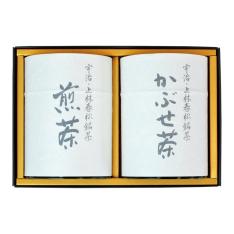 宇治 上林春松銘茶
かぶせ茶
宇治 上林春松銘茶
煎茶